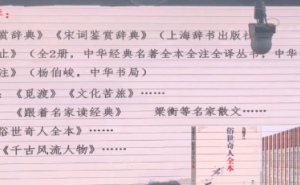 赏辞典》《宋词鉴赏辞典》（上海辞书出版社
止》（全2册，中华经典名著全本全注全译丛书，中华
注》（杨伯峻，中华书局）
《觅渡》《文化苦旅》……
《跟着名家读经典》 梁衡等名家散文……
俗世奇人全本》……
《千古风流人物》……
俗世奇人全本